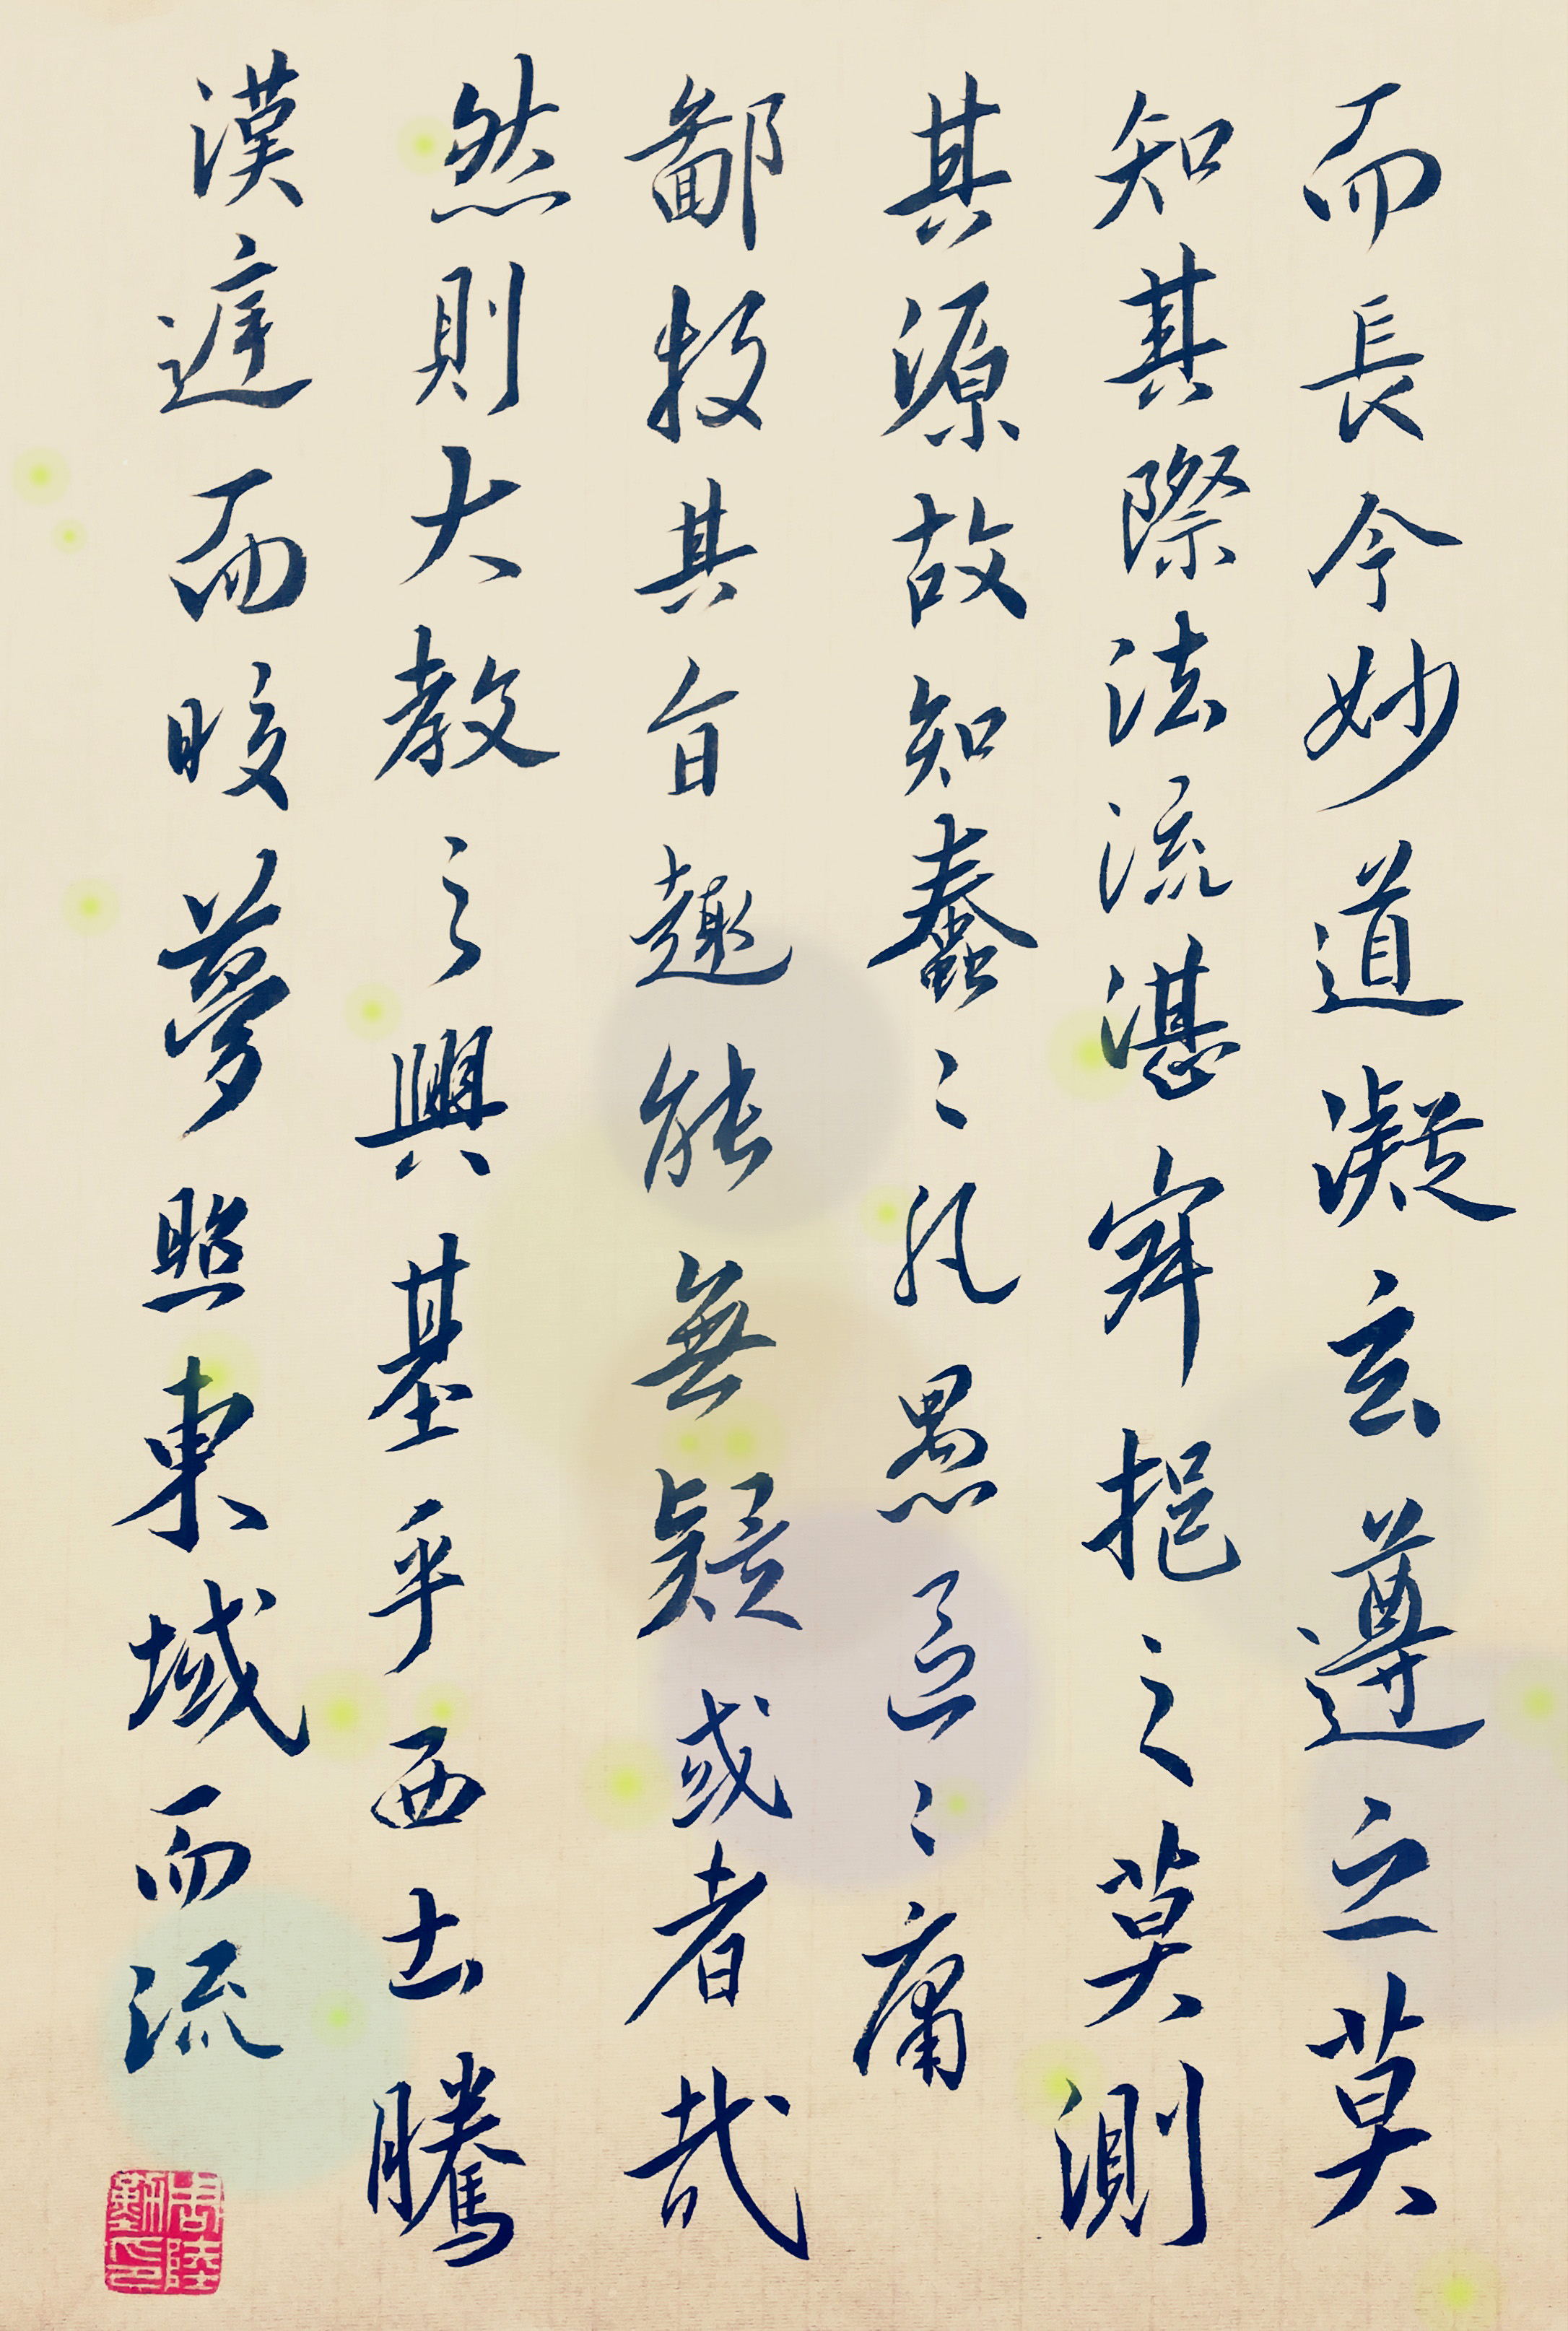 而長今妙道凝玄遵之莫
知其際法流湛寂挹之莫測
其源故知蠢〻凡愚區〻庸
鄙投其旨趣能無疑或者哉
然則大教之興基乎西土騰
漢庭而皎夢照東域而流